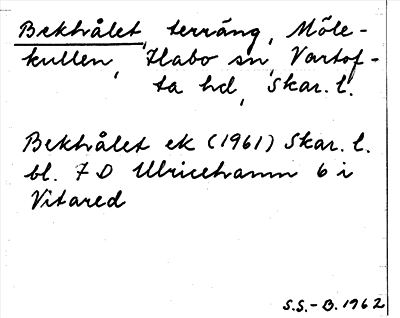 Bekhålet, terräng, Möle-
kullen, Habo sn, Vartof-
ta hd, Skar. l.
Bekhålet ek (1961) Skar. l.
bl. 7 D Ulricehamn 6 i
Vitared
S.S.-B. 1962